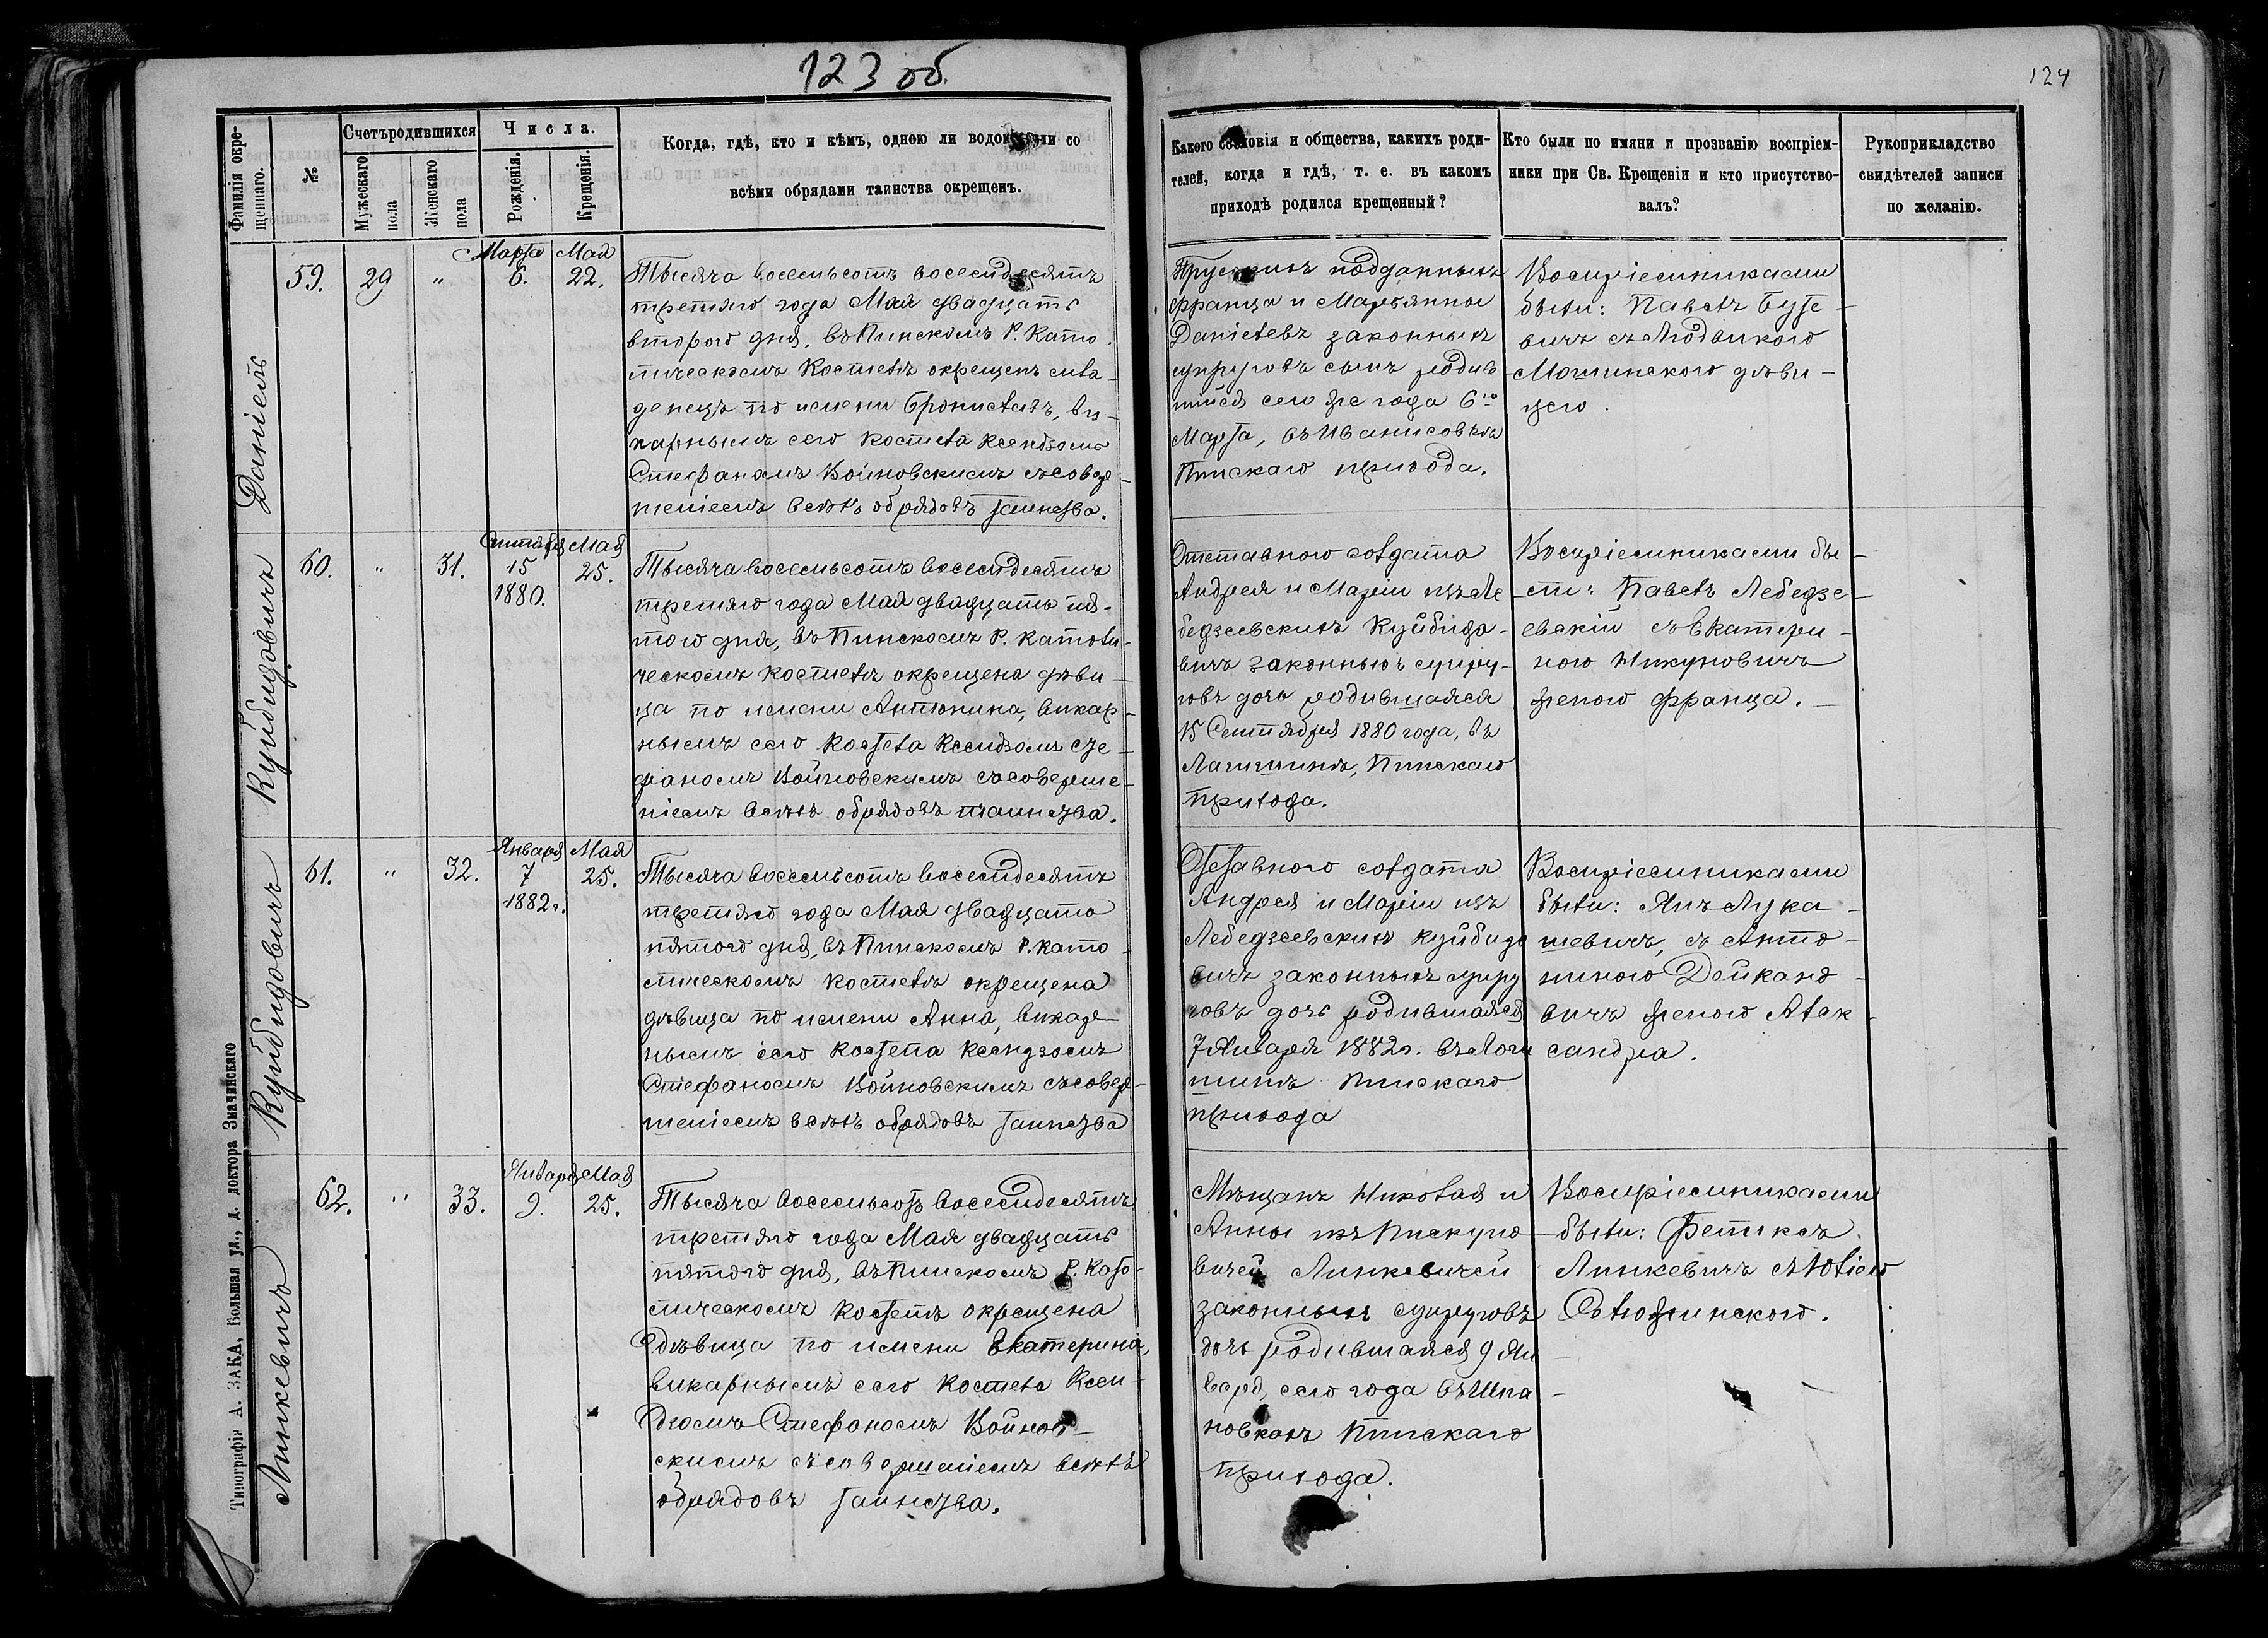 123 об.
124
Фамилія окре-
щеннаго.
№
Счетъ родившихся
Мужескаго
пола
Женскаго
пола
Числа.
Рожденія.
Крещенія.
Когда, гдѣ, кто и кѣмъ, одною ли водою или со
всѣми обрядами таинства окрещенъ.
Какого сословія и общества, какихъ роди-
телей, когда и гдѣ, т. е. въ какомъ
приходѣ родился крещенный?
Кто были по имяни и прозванію воспріем-
ники при Св. Крещеніи и кто присутство-
валъ?
Рукоприкладство
свидѣтелей записи
по желанію.
Даніель
59.
29
"
Марта
6.
Мая
22.
Тысяча восемьсотъ восемдесятъ
третяго года Мая двадцать
второго дня, въ Пинскомъ Р. Като
лическомъ Костелѣ окрещенъ мла-
денецъ по имени Брониславъ, ви-
карнымъ сего Костела Ксендзомъ
Стефаномъ Войновскимъ съ совер-
шеніемъ всѣхъ обрядовъ таинства.
Прускихъ подданныхъ
Франца и Марьянны
Даніелевъ законныхъ
супруговъ сынъ родив
шійся сего же года 6го
Марта, въ Иванисовкѣ
Пинскаго прихода.
Воспріемниками
были: Павелъ
вичъ съ Людвикою
дѣви-
цею.
Куйбидовичъ
60.
"
31.
Сентября
15
1880.
Мая
25.
Тысяча восемьсотъ восемдесятъ
третяго года Мая двадцать пя-
того дня, въ Пинскомъ Р. Католи-
ческомъ Костелѣ окрещена дѣви-
ца по имени Антонина, викар-
нымъ сего Костела Ксендзомъ Сте-
фаномъ Войновскимъ съ соверше-
ніемъ всѣхъ обрядовъ таинства.
Отставного солдата
Андрея и Маріи изъ Ле-
бедзеевскихъ Куйбидо-
вичъ законныхъ супру-
говъ дочь родившаяся
15 Сентября 1880 года, въ
Логишинѣ, Пинскаго
прихода.
Воспріемниками бы-
ли: Павелъ Лебедзе-
евскій съ Екатери-
ною Никуновичъ
женою Франца.
Куйбидовичъ
61.
"
32.
Января
7
1882 г.
Мая
25.
Тысяча восемьсотъ восемдесятъ
третяго года Мая двадцать
пятого дня, въ Пинскомъ Р. Като-
лическомъ Костелѣ окрещена
дѣвица по имени Анна, викар-
нымъ сего Костела Ксендзомъ
Стефаномъ Войновскимъ съ совер-
шеніемъ всѣхъ обрядовъ таинства
Отставного солдата
Андрея и Маріи изъ
Лебедзеевскихъ Куйбидо
вичъ законныхъ супру
говъ дочь родившаяся
7 Января 1882 г. въ Логи
шинѣ Пинскаго
прихода
Воспріемниками
были: Янъ Лука-
шевичъ, съ Анто-
ниною Дейкано-
вичъ женою Алек-
сандра.
Линкевичъ
62.
"
33.
Января
9.
Мая
25.
Тысяча восемьсотъ восемдесятъ
третяго года Мая двадцать
пятого дня, въ Пинскомъ Р. Като-
лическомъ Костелѣ окрещена
дѣвица по имени Екатерина,
викарнымъ сего Костела Ксен-
дзомъ Стефаномъ Войнов-
скимъ съ совершеніемъ всѣхъ
обрядовъ таинства.
Мѣщанъ Николая и
Анны изъ Пискуно
вичей Линкевичей
законныхъ супруговъ
дочь родившаяся 9 Ян
варя сего года въ Шпа-
новкахъ Пинскаго
прихода.
Воспріемниками
были: Феликсъ
Линкевичъ съ Юліею
Типографія А. ЗАКА, Большая ул., д. доктора Змачинскаго